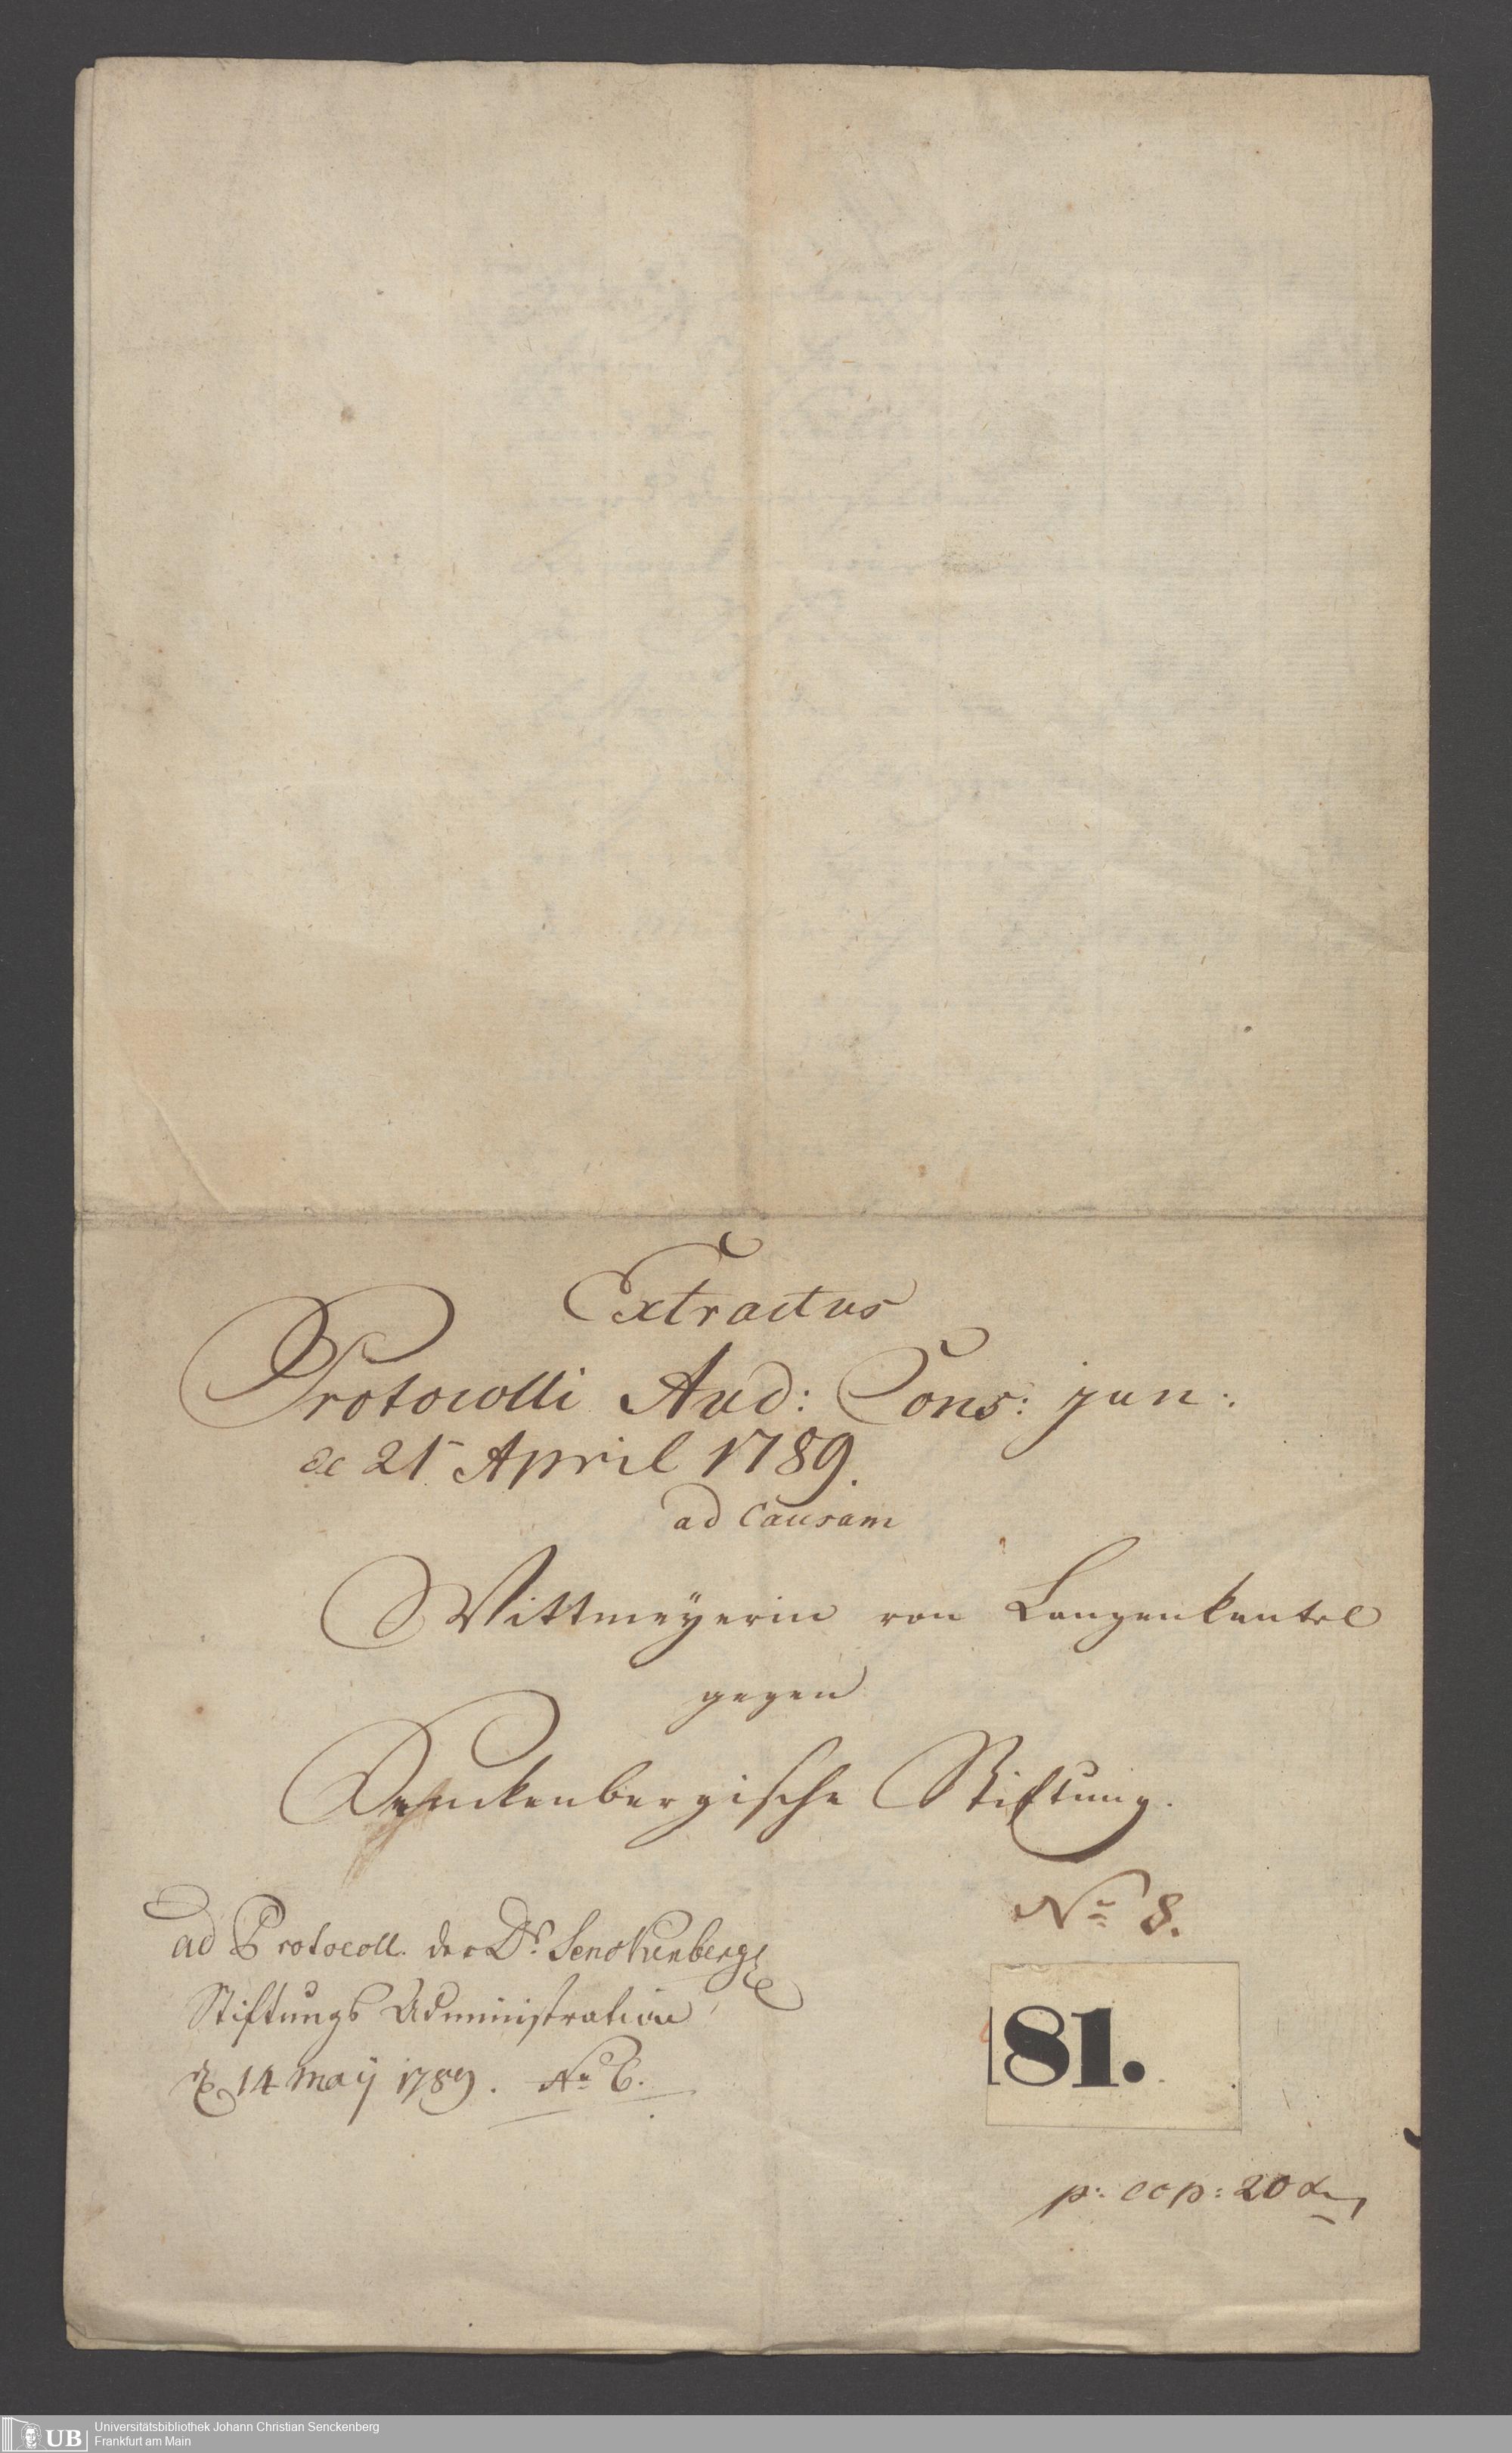 Extractus
Protocolli Aud: Cons: jun:
de 21 April 1789.
ad Causam
Wittmeÿerin von Langenkantel
gegen
Senckenbergische Stiftung.
No 8.
ad Protocoll. der Dr. Senckenberg
Stiftungs Administration
14 Maÿ 1789. No 6.
81.
p: cop: 20
UB
Universitätsbibliothek Johann Christian Senckenberg
Frankfurt am Main